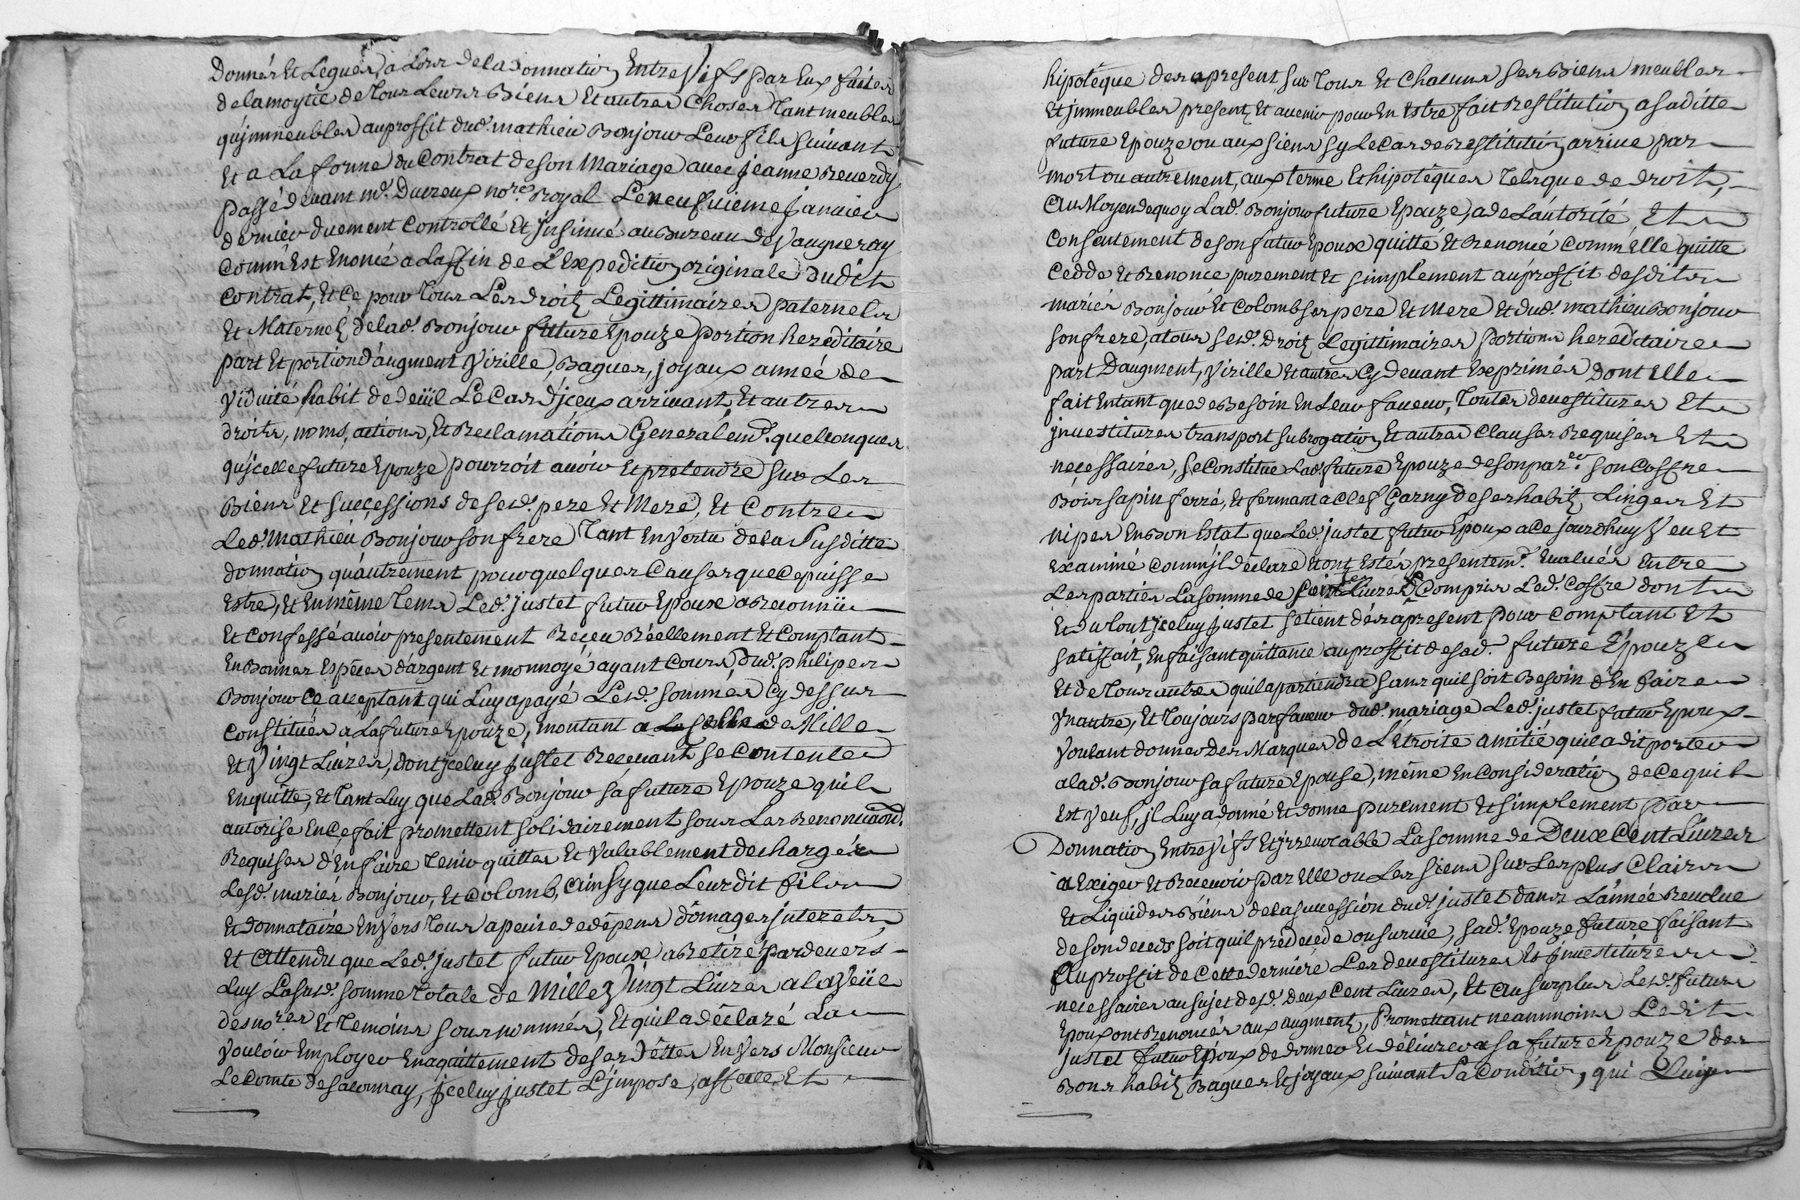 Donnér Et Leguér a Lors de la donnation Entre Vifs par Eux faite
de la moytié de Tous Leurs Biens Et autres Choses Tant meubles
qu'jmmeubles au proffit dud. mathieu Bonjour Leur fils suivant
Et a La forme du Contrat de son Mariage avec jeanne Reverdy
passé devant me. Ducreux nore. Royal Le neufvieme janvier
dernier duement Controllé Et jnsinué au Bureau de Vaugneray
Comm Est Enoncé a La ffin de L'Expedition originale dudit
Contrat, Et Ce pour Tous Les droitz Legittimaires paternels
Et Maternelz de lad. Bonjour future Epouze portion hereditaire
part Et portion d'augment Virille, Bagues, joyaux année de
Viduité, habit de deüil Le Cas d'jceux arrivant, Et autres
droits, noms, actions, Et Reclamations Generalemt. quelconques
qu'jcelle future Epouze pourroit avoir Et pretendre sur Les
Biens Et successions de sesd. pere Et Mere, Et Contre
Led. Mathieu Bonjour son frere Tant En Vertu de la Susditte
donnation qu'autrement pour quelques Causes que Ce puisse
Estre, Et En même Tems Led. justet futur Epoux a Reconnü
Et Confessé avoir presentement Reçeu Réellement Et Comptant
En Bonnes Espêces d'argent Et monnoyé ayant Cours, dud. philipes
Bonjour Ce acceptant qui Luy a payé Lesd. sommes Cy dessus
Constituées a La future Epouze, montant a La Somme de Mille
Et Vingt Livres, dont jceluy justet Recevant se Contente
En quitte, Et Tant Luy que Lad. Bonjour sa future Epouze qu'il
autorise En Ce fait promettent solidairement sous Les Renonciaons.
Requises d'En faire Tenir quittes Et Valablement dechargér
Lesd. mariés Bonjour, Et Colomb, Ainsy que Leurdit fils
Et donnataire Envers Tous a peine de dépens dômages jnterets,
Et Attendu que Led. justet futur Epoux a Retiré pardevers
Luy La susd. somme Totale de Mille Vingt Livres a la Veüe
des nores. Et Temoins sousnommés, Et qu'il a déclaré La
Vouloir Employer En aquittement de ses dêttes Envers Monsieur
Le Comte de Saconnay, jceluy justet L'jmpose, assure Et
hipotêque des a present sur Tous Et Chacuns ses Biens meubles
Et jmmeubles presentz Et avenir pour En Estre fait Restitution a saditte
future Epouze ou aux siens sy Le Cas de Restitution arrive par
mort ou autrement, aux terme Et hipotêques Tels que de droit,
Au Moyen de quoy Lad. Bonjour future Epouze, a de L'autorité Et
Consentement de son futur Epoux quitté Et Renoncé Comm'Elle quitte
Cedde Et Renonce purement Et simplement au proffit desdits
mariés Bonjour Et Colomb ses pere Et Mere Et dud. mathieu Bonjour
son frere, a tous sesd. droitz Legittimaires portions hereditaires
part D'augment, Virille Et autres Cy devant Exprimés Dont Elle
fait Entant que de Besoin En Leur faveur, Toutes devestitures Et
jnvestitures transport subrogation Et autres Clauses Requises Et
neçessaires, se Constitue Lad. future Epouze de son parer. son Coffre
Bois sapin ferré, Et fermant a Clef Garny de ses habitz Linges Et
nipes En Bon Estat que Led. justet futur Epoux a Ce jourdhuy Veu Et
Examiné Comm'jl déclare Et ont Estés presentemt. Evalués Entre
Les parties La somme de Cent Livres y Compris Led. Coffre dont
Et du Tout jceluy justet se tient dés a present pour Comptant Et
satisfait, En faisant quittance au proffit de sad. future Epouze
Et de Tous autres qu'il apartiendra sans qu'il soit Besoin d'En faire
Vn autre, Et Toujours par faveur dud. mariage Led. justet futur Epoux
Voulant donner des Marques de L'étroite amitié qu'il a dit porter
a lad. Bonjour sa future Epouse, même En Consideration de Ce qu'il
Est Veuf, jl Luy a donné Et donne purement Et simplement par
Donnation Entre Vifs Et jrrevocable La somme de Deux Cent Livres
a Exiger Et Recevoir par Elle ou Les siens sur Les plus Clairs
Et Liquides Biens de la succession dud. justet dans L'année Revolue
de son deceds soit qu'il prédecede ou survive, sad. Epouze future faisant
Au proffit de Cette derniere Les devestitures Et jnvestitures
necessaires au sujet desd. deux Cent Livres, Et Au surplus Lesd. futurs
Epoux ont Renoncés aux augmentz, Promettant neammoins Ledit
justet futur Epoux de donner Et délivrer a sa future Epouze des
Bons habitz Bagues Et joyaux suivant Sa Condition, qui Luy